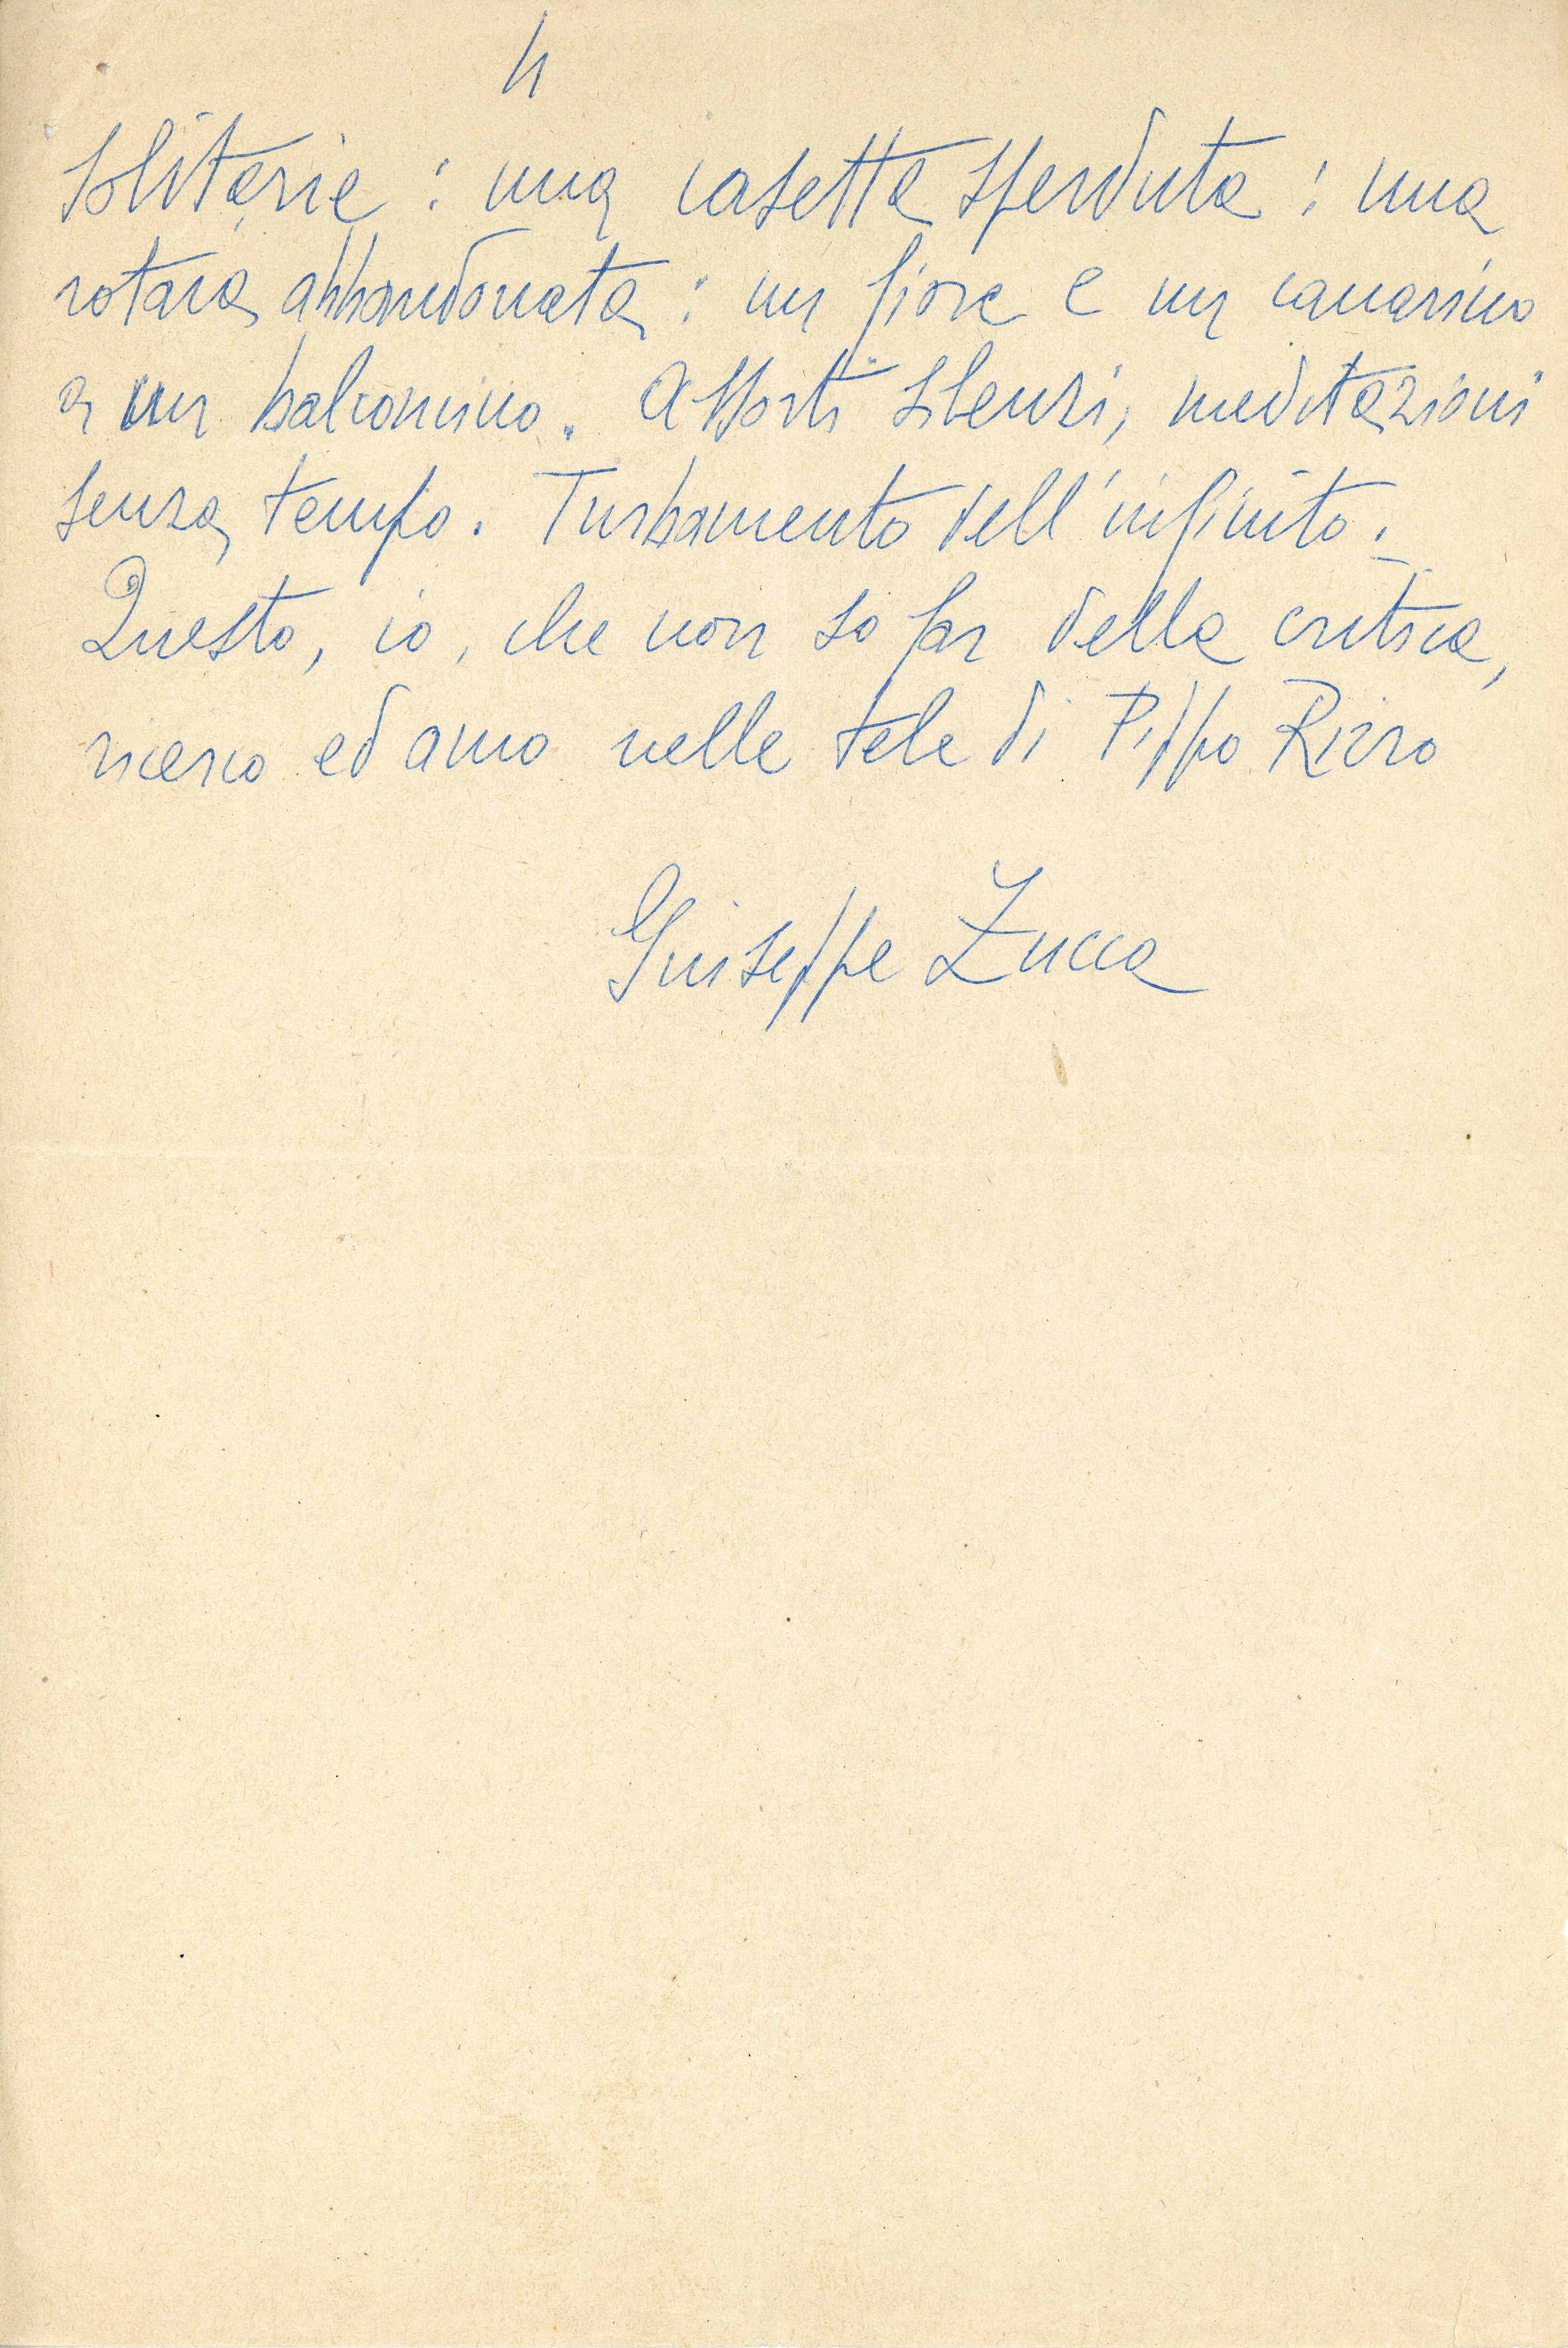 4
solitarie : una casetta sperduta : una
rotaia abbandonata : un fiore e un canarino
a un balconcino. Assorti silenzi, meditazioni
senza tempo. Turbamento dell'infinito.
Questo, io, che non so far della critica,
ricerco ed amo nelle tele di Pippo Rizzo
Giuseppe Zucca